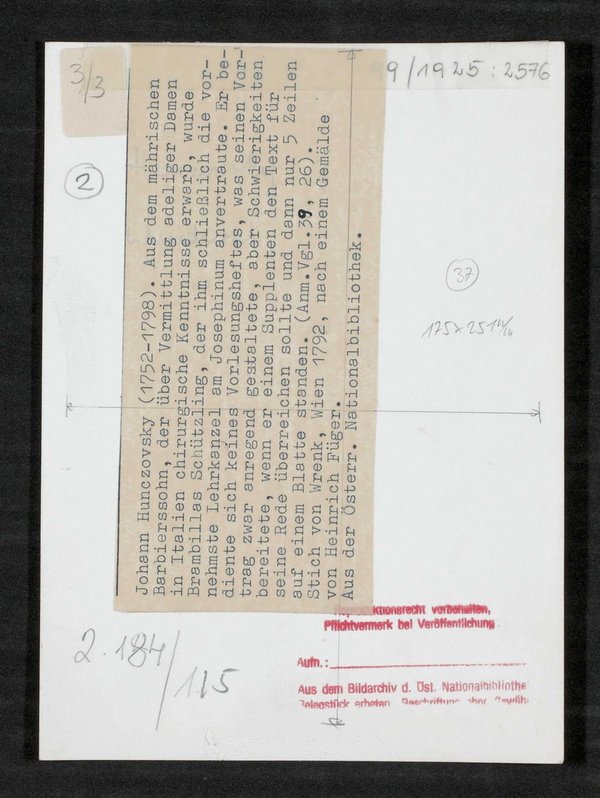 3/3
99/1925:2576
2
Johann Hunczovsky (1752-1798). Aus dem mährischen
Barbierssohn, der über Vermittlung adeliger Damen
in Italien chirurgische Kenntnisse erwarb, wurde
Brambillas Schützling, der ihm schließlich die vor-
nehmste Lehrkanzel am Josephinum anvertraute. Er be-
diente sich keines Vorlesungsheftes, was seinen Vor-
trag zwar anregend gestaltete, aber Schwierigkeiten
bereitete, wenn er einem Supplenten den Text für
seine Rede überreichen sollte und dann nur 5 Zeilen
auf einem Blatte standen. (Anm.Vgl.39, 26).
Stich von Wrenk, Wien 1792, nach einem Gemälde
von Heinrich Füger.
Aus der Österr. Nationalbibliothek.
37
175 x 251
2.184/115
ktionsrecht vorbehalten,
Pflichtvermerk bei Veröffentlichung
Aufn.:
Aus dem Bildarchiv d. Öst. Nationalbibliothe
Belegstück erbeten